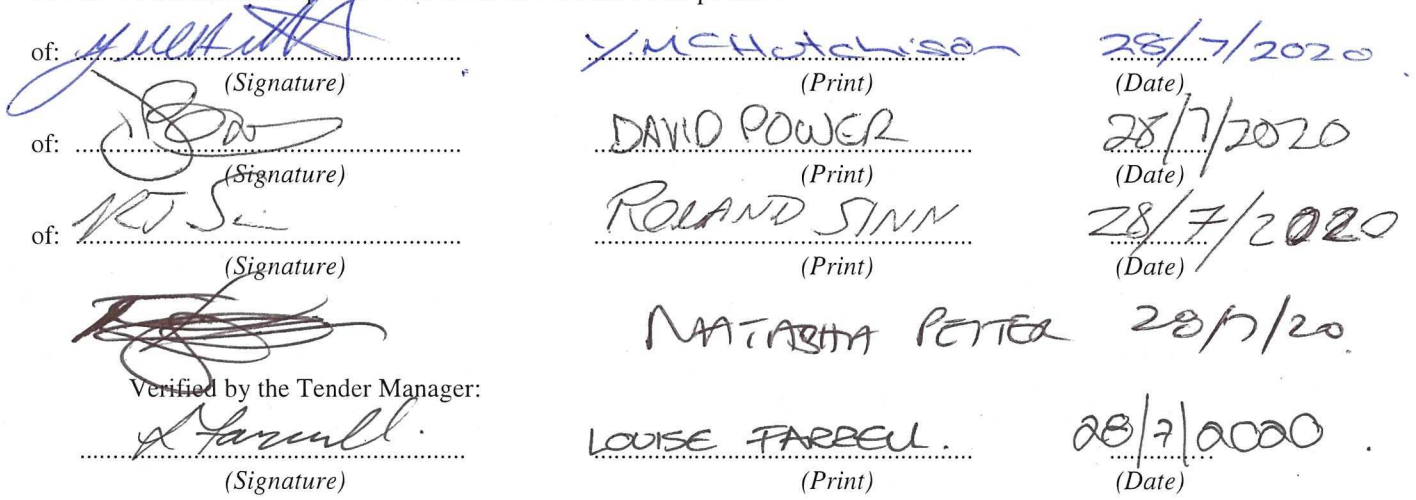 of: Y. McHutchison 28/7/2020
(Signature) (Print) (Date)
of: DAVID POWER 28/7/2020
(Signature) (Print) (Date)
of: RJ Sinn ROLAND SINN 28/7/2020
(Signature) (Print) (Date)
NATASHA PETTER 28/7/20
Verified by the Tender Manager:
L Farrell. LOUISE FARRELL. 28/7/2020
(Signature) (Print) (Date)